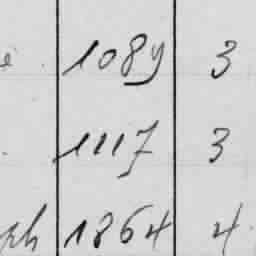 1089 3
1117 3
ph 1864 4